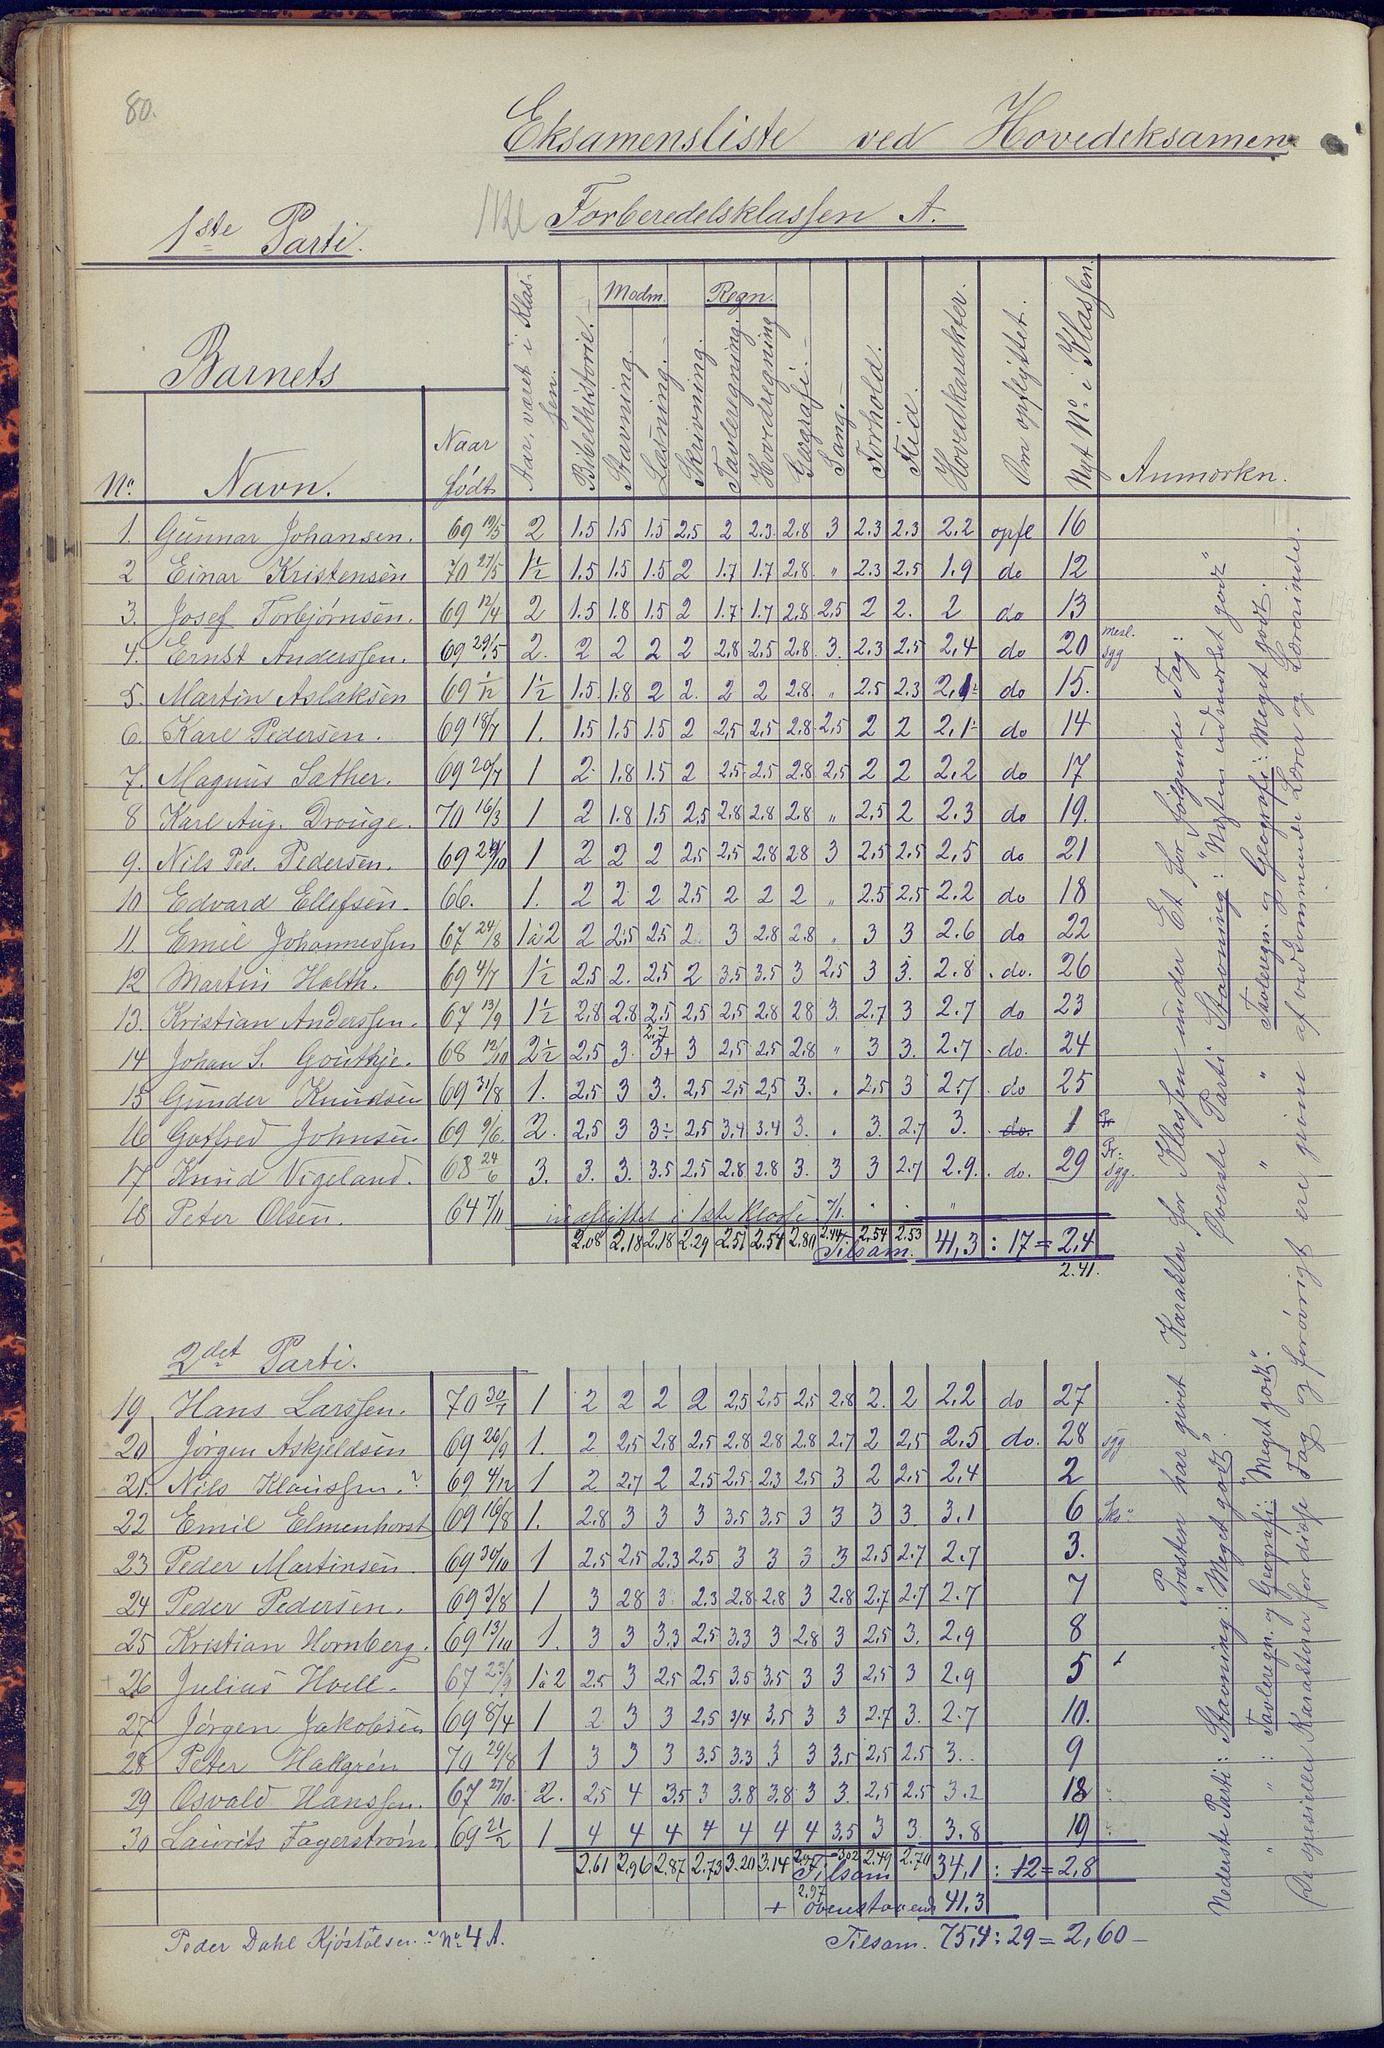 80.
Eksamensliste ved Hovedeksamen
1ste Parti. Forberedelsklassen A.
Barnets
No. Navn. Naar født Aar, været i Klassen. Bibelhistorie. Modm. Stavning. Læsning. Skrivning. Regn. Tavleregning. Hovedregning Geografi. Sang. Forhold. Flid. Hovedkarakter. Om opflyttet. Nyt No. i Klassen. Anmærkn.
1. Gunnar Johansen. 69 19/5 2 1.5 1.5 1.5 2.5 2 2.3 2.8 3 2.3 2.3 2.2 opfl 16
2 Einar Kristensen 70 27/5 1½ 1.5 1.5 1.5 2 1.7 1.7 2.8 „ 2.3 2.5 1.9 do 12
3. Josef Torbjørnsen. 69 12/4 2 1.5 1.8 1.5 2 1.7 1.7 2.8 2,5 2 2. 2 do 13
4. Ernst Anderssen. 69 29/5 2. 2 2 2 2 2,8 2,5 2.8 3. 2.3 2.5 2,4 do 20 sgg
5. Martin Aslaksen 69 1/12 1½ 1.5. 1.8 2 2. 2 2 2.8. „ 2.5 2.3 2,1 do 15.
6. Karl Pedersen. 69 18/7 1. 1.5 1.5 1.5 2 2,5 2,5 2.8 2,5 2 2 2,1 do 14
7. Magnus Sæther. 69 20/7 1 2 1.8 1.5 2 2,5 2.5 2.8 2,5 2 2 2.2 do 17
8 Karl Aug. Drouge. 70 16/3 1 2 1.8 1.5 2,5 2.8 2.8 2.8 „ 2,5 2 2.3 do 19.
9. Nils Ped. Pedersen. 69 1 2 2 2 2,5 2,5 2.8 28 3 2,5 2.5 2,5 do 21
10 Edvard Ellefsen. 66. 1. 2 2 2 2.5 2 2 2 „ 2.5 2,5 2.2 do 18
11. Emil Johannessen 67 24/8 1 à 2 2 2,5 2.5 2. 3 2.8 2.8 „ 3 3 2.6 do 22
12 Martin Holth. 69 4/7 1½ 2,5 2. 2,5 2 3.5 3.5 3 2.5 3 3. 2.8 do. 26
13. Kristian Anderssen. 67 13/9 1½ 2,8 2.8 2,5 2,5 2,5 2.8 28 3 2.7 3 2.7 do 23
14 Johan S. Gouthje. 68 12/10 2½ 2,5 3. 2,7 3+ 3 2,5 2.5 2.8 „ 3 3. 2.7 do. 24
15 Gunder Knudsen 69 31/8 1. 2,5 3 3. 2,5 2,5 2,5 3. „ 2,5 3 2.7 do 25
16 Gotfred Johnsen. 69 9/6. 2. 2,5 3 3÷ 2,5 3.4 3.4 3. „ 3. 2.7 3. do. 1
17 Knud Vigeland. 68 24/6 3. 3. 3. 3.5 2.5 2.8 2.8 3. 3 3 2.7 2.9. do. 29 Fr: sgg.
18 Peter Olsen. 64 7/11 i 1ste Klasse 7/1. „ „
2.08 2,18 2.18 2.29 2.51 2.54 2.80 2.54 2.53 Tilsam. 41,3 : 17 = 2,4
2.41.
2det Parti.
19 Hans Larssen. 70 30/1 1 2 2 2 2 2,5 2,5 2,5 2,8 2. 2 2.2 do 27
20 Jørgen Askjeldsen 69 26/9 1. 2 2,5 2,8 2,5 2.8 2.8 2.8 2.7 2 2,5 2.5 do. 28 sgg
21. Nils Klaussen. 69 4/12 1 2 2,7 2 2,5 2.5 2.3 2.5 3 2 2,5 2,4 2
22 Emil Elmenhorst 69 16/8 1. 2.8 3 3 3 3,5 3,5 3 3 3 3. 3.1 6
23 Peder Martinsen. 69 30/10 1 2,5 2,5 2.3 2,5 3 3 3 3 2.5 2.7 2.7 3.
24 Peder Pedersen. 69 3/8 1 3 28 3. 2.3 2.8 2.8 3 2.8 2.7 2.7 2.7 7
25 Kristian Hornberg. 69 13/10 1. 3 3 3.3 2.5 3.3 3 2.8 3 2,5 3. 2.9 8
26 Julius Hvell. 67 23/9 1 à 2 2.5 3 2,5 2.5 3.5 3,5 3 3 2,5 3 2.9 5
27 Jørgen Jakobsen 69 8/4 1 2. 3 3 2.5 3/4 3,5 3 3 2.7 3. 2.7 10.
28 Peter Hallgrén 70 29/8 1 3 3 3 3.5 3.3 3 3 3.5 2,5 2.5 3. 9
29 Osvald Hanssen. 67 27/10. 2. 2,5 4 3.5 3 3.8 3.8 3 3. 2,5 2.5 3.2 18
30 Laurits Fagerstrøm 69 21/2 1 4 4 4 4 4 4 4 3,5 3 3. 3.8 19.
2.61 2.96 2.87 2.73 3.20 3.14 2,97 3.02 2.49 2.70 Tilsam 34,1 : 12 = 2,8
2.97
+ ovenstaaende 41.3
Peder Dahl Kjøstolsen No. 4 A. Tilsam. 75,4 : 29 = 2,60 –
Præsten har givet Karakter for Klassen under Et for følgende Fag:
Øverste Parti Stavning: „Næsten udmærket godt“
„ „ Tavleregn. og Geografi: Meget godt.
Nederste Parti: Stavning: „Meget godt“.
„ „ : Tavleregn. og Geografi: „Meget godt“.
(De specielle Karakterer for disse Fag og forøvrigt ere givne af vedkommende Lærer og Lærerinde.